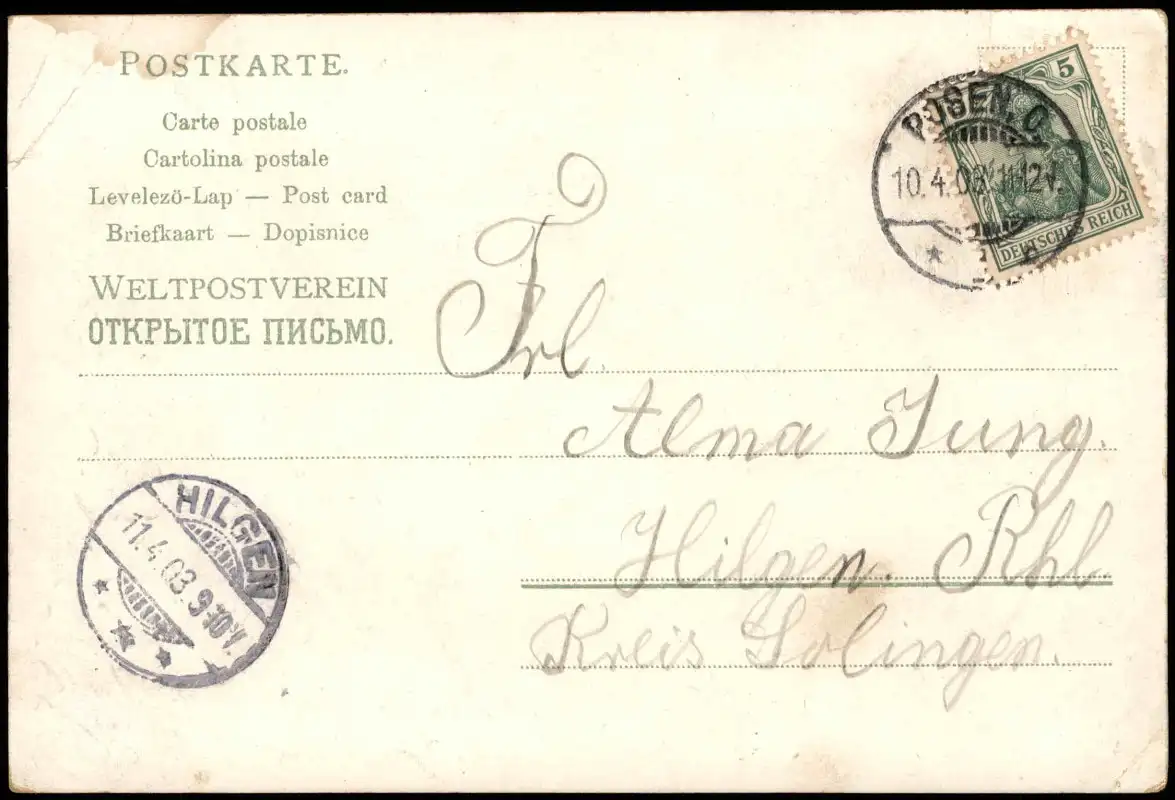 POSTKARTE.
Carte postale
Cartolina postale
Levelező-Lap — Post card
Briefkaart — Dopisnice
WELTPOSTVEREIN
ОТКРЫТОЕ ПИСЬМО.
5
DEUTSCHES REICH
POSEN. O.
10.4.03. 11-12V.
Frl.
Alma Jung.
Hilgen. Rhl.
Kreis Solingen.
HILGEN
11.4.03. 9-10V.